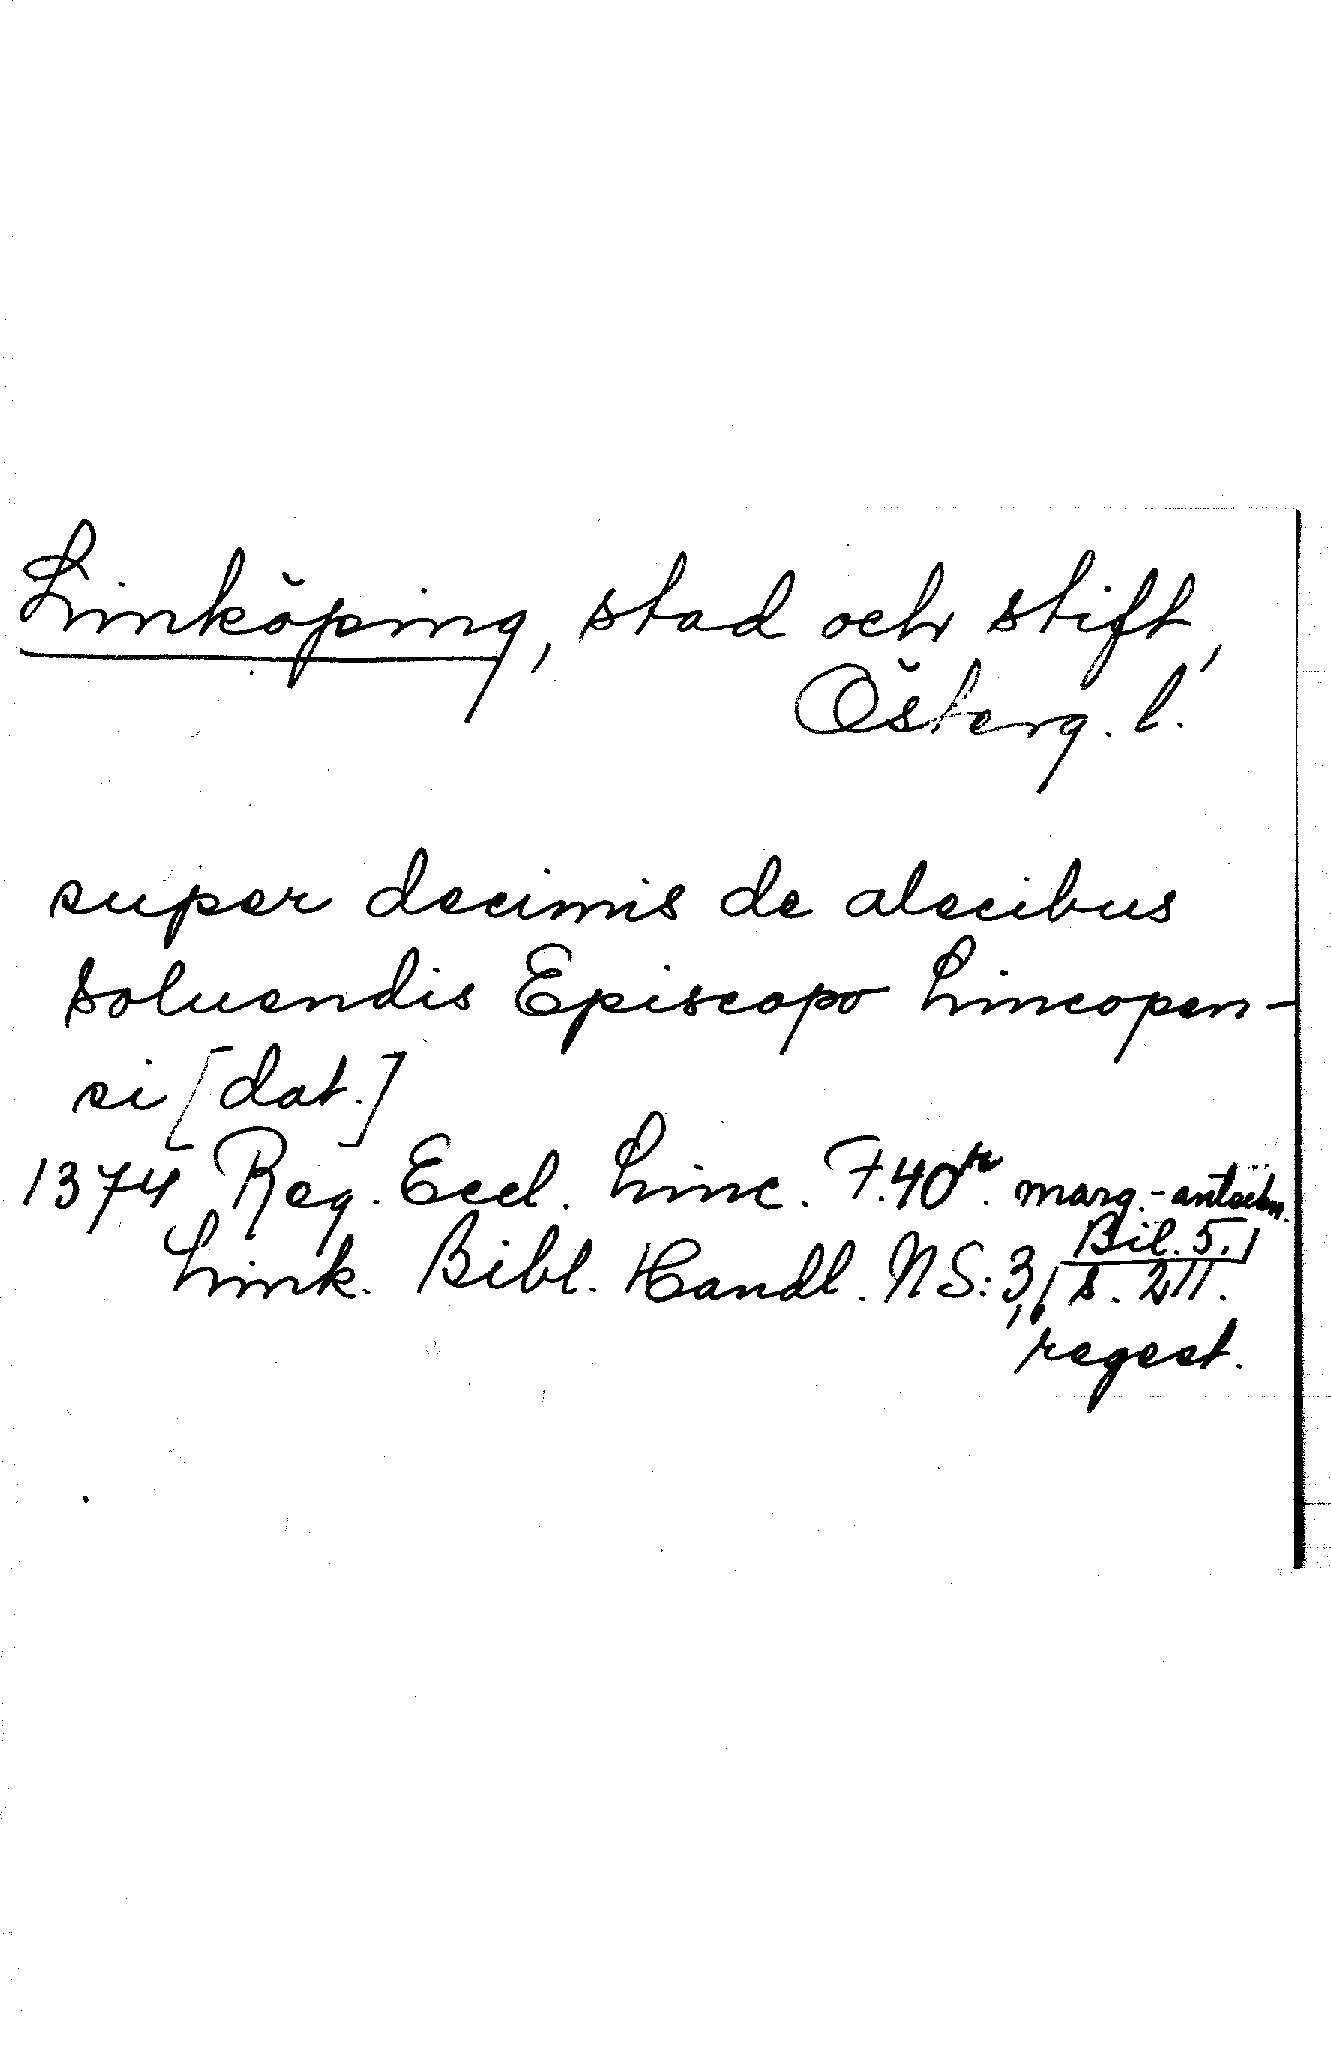 Linköping, stad och stift,
Österg. l.
super decimis de alecibus
soluendis Episcopo Lincopen-
si [dat.]
1374 Reg. Eccl. Linc. F. 40r. marg.-anteckn.
Link. Bibl. Handl. NS: 3,1 Bil. 5, s. 211.
regest.